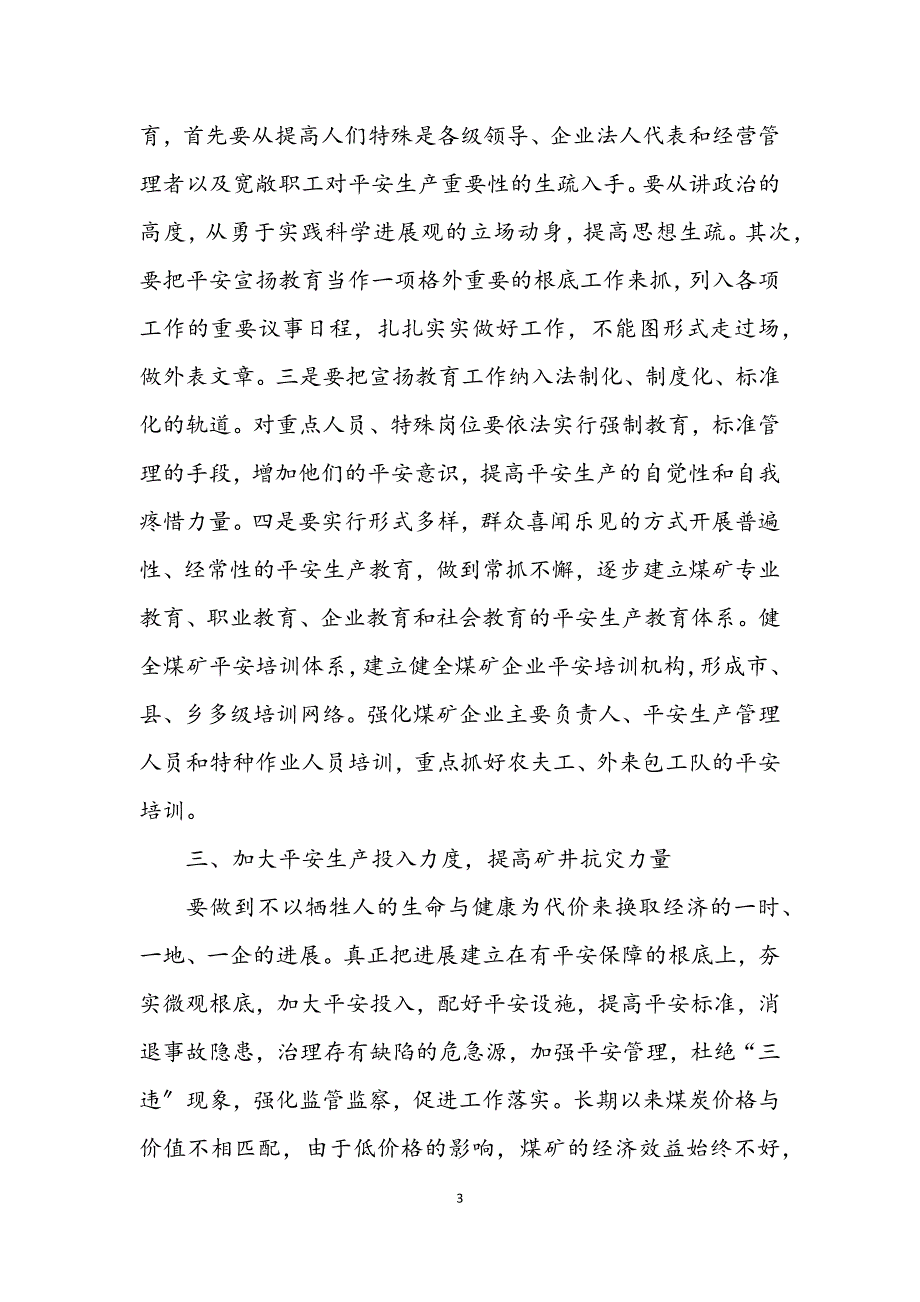 育，首先要从提高人们特殊是各级领导、企业法人代表和经营管
理者以及宽敞职工对平安生产重要性的生疏入手。要从讲政治的
高度，从勇于实践科学进展观的立场动身，提高思想生疏。其次，
要把平安宣扬教育当作一项格外重要的根底工作来抓，列入各项
工作的重要议事日程，扎扎实实做好工作，不能图形式走过场，
做外表文章。三是要把宣扬教育工作纳入法制化、制度化、标准
化的轨道。对重点人员、特殊岗位要依法实行强制教育，标准管
理的手段，增加他们的平安意识，提高平安生产的自觉性和自我
疼惜力量。四是要实行形式多样，群众喜闻乐见的方式开展普遍
性、经常性的平安生产教育，做到常抓不懈，逐步建立煤矿专业
教育、职业教育、企业教育和社会教育的平安生产教育体系。健
全煤矿平安培训体系，建立健全煤矿企业平安培训机构，形成市、
县、乡多级培训网络。强化煤矿企业主要负责人、平安生产管理
人员和特种作业人员培训，重点抓好农夫工、外来包工队的平安
培训。
三、加大平安生产投入力度，提高矿井抗灾力量
要做到不以牺牲人的生命与健康为代价来换取经济的一时、
一地、一企的进展。真正把进展建立在有平安保障的根底上，夯
实微观根底，加大平安投入，配好平安设施，提高平安标准，消
退事故隐患，治理存有缺陷的危急源，加强平安管理，杜绝“三
违〞现象，强化监管监察，促进工作落实。长期以来煤炭价格与
价值不相匹配，由于低价格的影响，煤矿的经济效益始终不好，
3